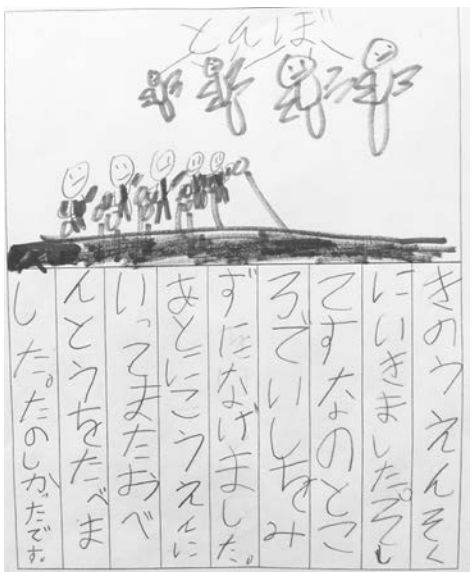 とんぼ
きのうえんそく
にいきました。そし
てすなのとこ
ろでいしをみ
ずになげました。
あとにこうえんに
いってまたおべ
んとうをたべま
した。たのしかだです。